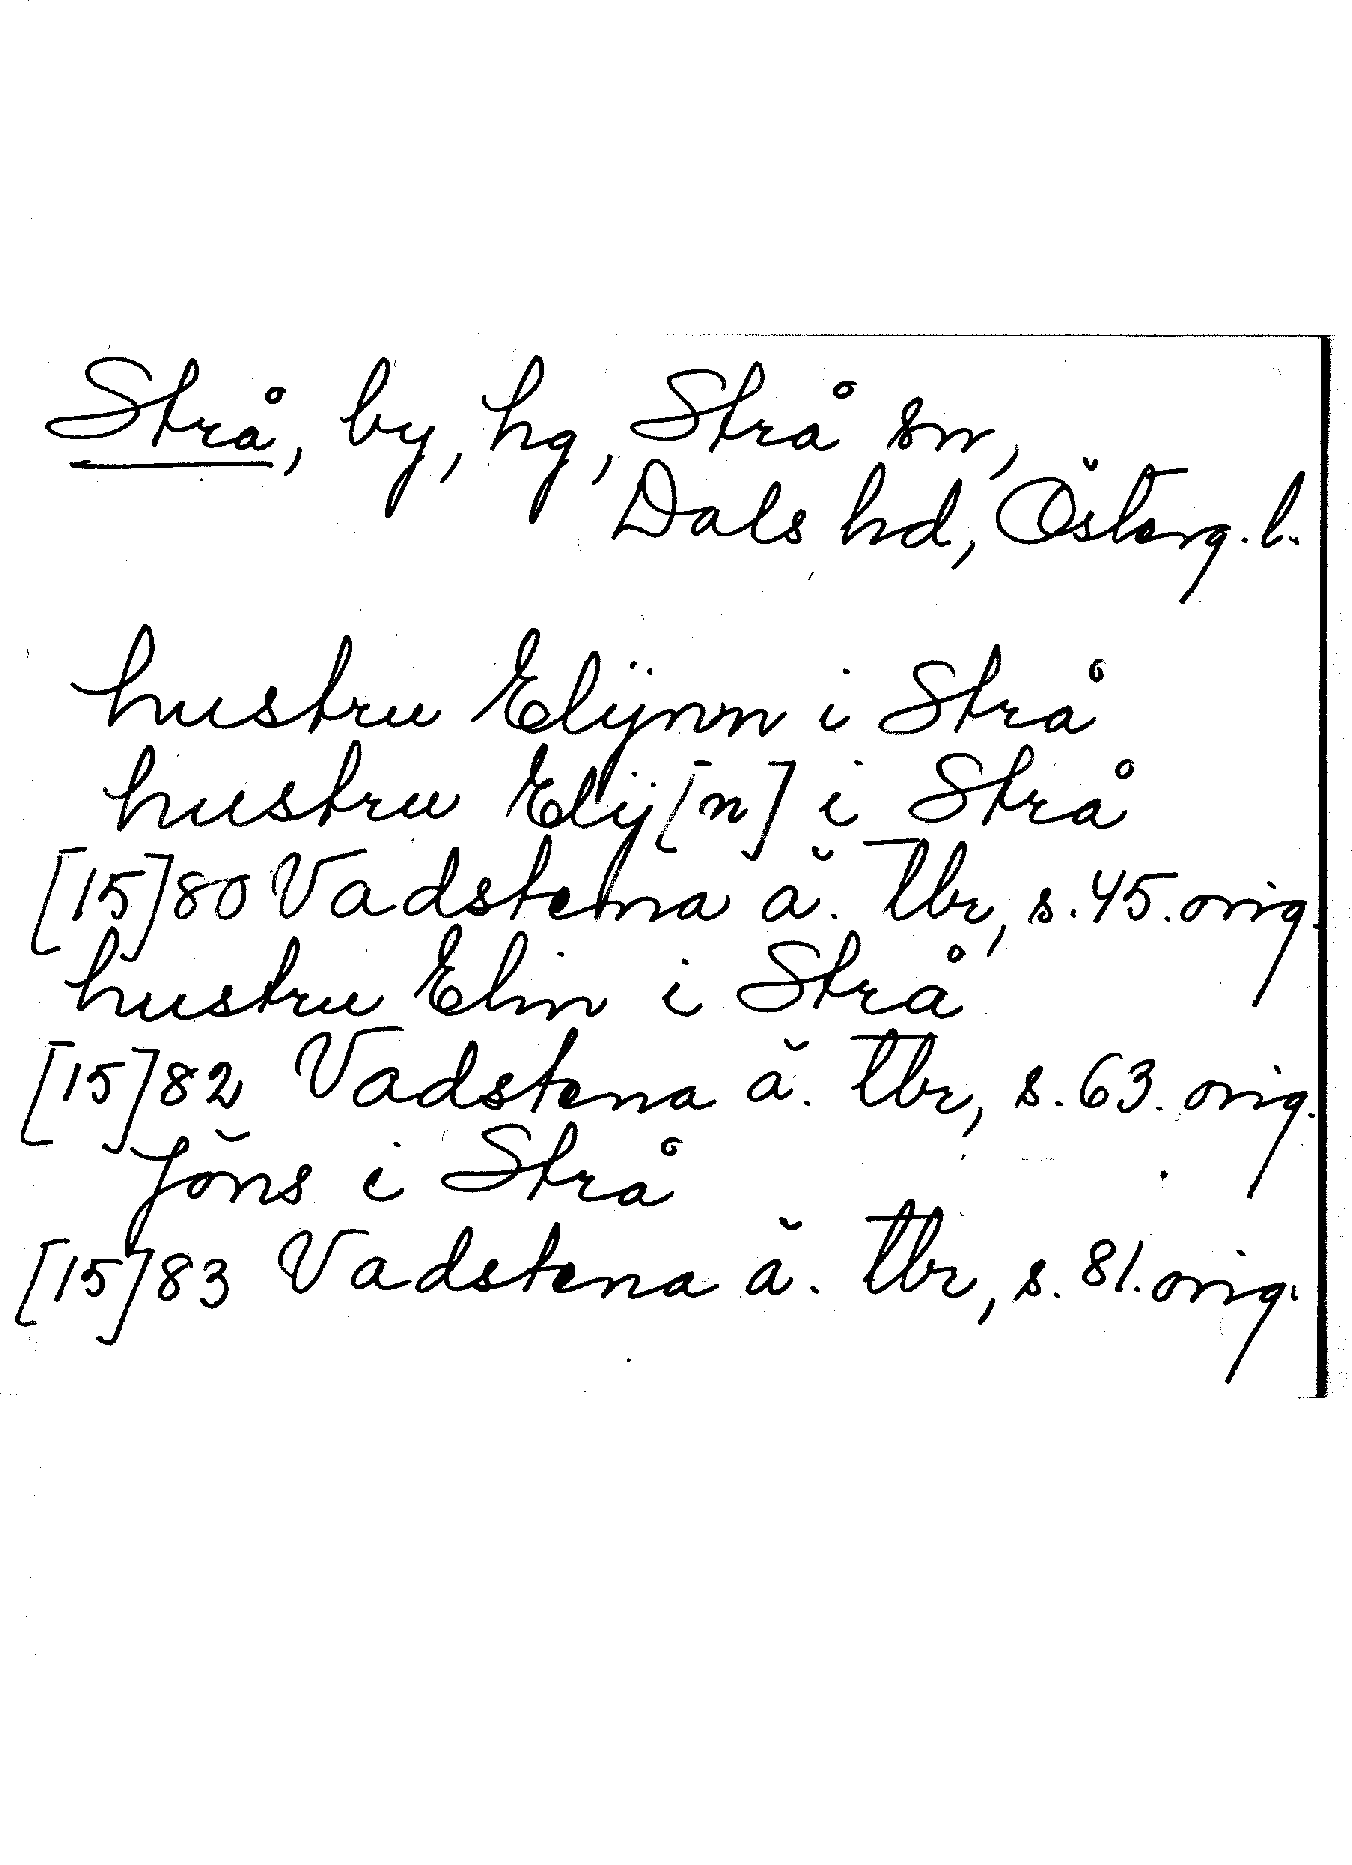 Strå, by, hg, Strå sn,
Dals hd, Österg. l.
hustru Elijnn i Strå
hustru Elij[n] i Strå
[15]80 Vadstena ä. tbr, s. 45. orig.
hustru Elin i Strå
[15]82 Vadstena ä. tbr, s. 63. orig.
Jöns i Strå
[15]83 Vadstena ä. tbr, s. 81. orig.